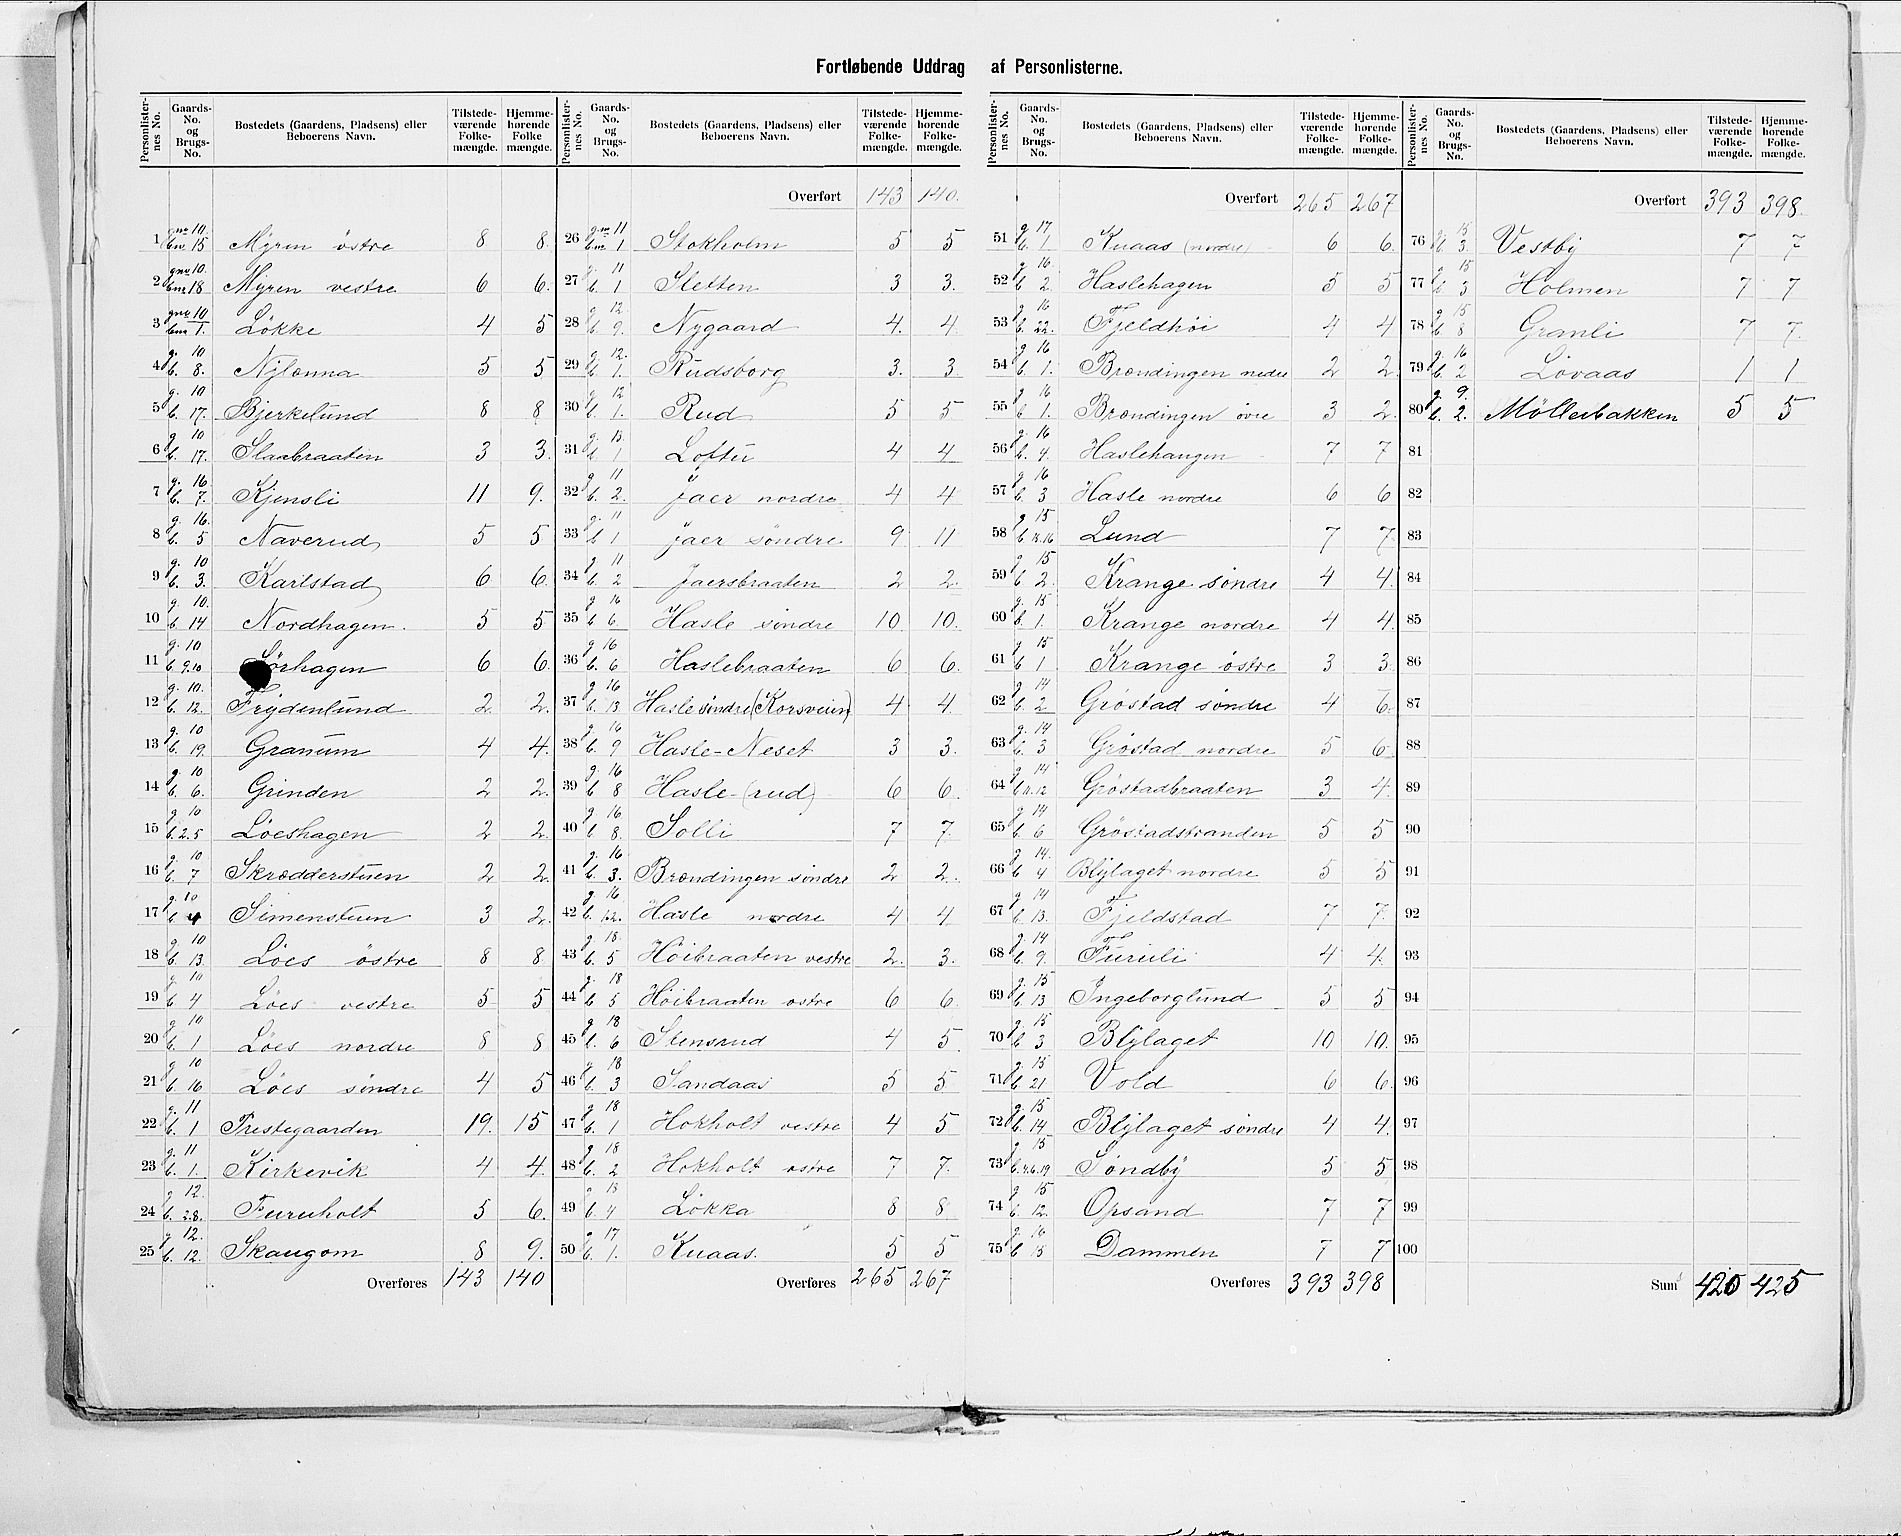 Fortløbende Uddrag af Personlisterne.
Personlister-nes No. | Gaards-No. og Brugs-No. | Bostedets (Gaardens, Pladsens) eller Beboerens Navn. | Tilstede-værende Folke-mængde. | Hjemme-hørende Folke mængde.
1 | gno 10. bno 15 | Myren östre | 8 | 8.
2 | gno 10. bno 18 | Myren vestre | 6 | 6.
3 | gno 10 bno 1. | Løkke | 4 | 5
4 | g. 10 b. 8. | Nylænna | 5 | 5
5 | g. 10 b. 17. | Bjerkelund | 8 | 8
6 | g. 10 b. 17. | Slaabraaten | 3 | 3.
7 | g. 16. b. 7. | Kjensli | 11 | 9.
8 | g. 16. b. 5 | Naverud | 5 | 5
9 | g. 10 b. 3. | Karlstad | 6 | 6.
10 | g. 10. b. 14 | Nordhagen. | 5 | 5
11 | g. 10 b 9.10 | Sörhagen | 6 | 6.
12 | g. 10. b. 12. | Frydenlund | 2 | 2.
13 | g. 10 b. 19. | Granum | 4 | 4.
14 | g. 10 b. 6. | Grinden | 2 | 2.
15 | g. 10 b. 2.5 | Löeshagen | 2 | 2.
16 | g. 10 b. 7 | Skrædderstuen | 2 | 2.
17 | g. 10 b. 4 | Simenstuen | 3 | 2.
18 | g. 10 b. 13. | Löes östre | 8 | 8
19 | g. 10 b 4 | Löes vestre | 5 | 5
20 | g 10 b. 1 | Löes nordre | 8 | 8
21 | g 10 b. 16 | Löes söndre | 4 | 5
22 | g. 11 b. 1 | Prestegaarden | 19. | 15
23 | g. 11 b. 1. | Kirkevik | 4 | 4.
24 | g 12. b. 28. | Furuholt | 5 | 6.
25 | g 12. b. 12. | Skaugom | 8 | 9.
Overføres | 143 | 140
Personlister-nes No. | Gaards-No. og Brugs-No. | Bostedets (Gaardens, Pladsens) eller Beboerens Navn. | Tilstede-værende Folke-mængde. | Hjemme-hørende Folke-mængde.
Overført | 143 | 140.
26 | gno 11 bno 1 | Stokholm | 5 | 5
27 | g. 11 b. 1 | Sletten | 3 | 3.
28 | g 12. b. 9. | Nygaard | 4. | 4.
29 | g. 12. b. 1. | Rudsborg | 3. | 3.
30 | g 12 b. 1. | Rud | 5 | 5
31 | g. 13. b 1 | Lofter | 4 | 4
32 | g. 11 b. 2. | Jaer nordre | 4 | 4
33 | g. 11 b 1 | Jaer söndre | 9 | 11
34 | g. 11 b 2 | Jaersbraaten | 2 | 2.
35 | g 16 b 6. | Hasle söndre | 10. | 10.
36 | g 16 b. 6 | Haslebraaten | 6 | 6.
37 | g. 16 b. 13 | Hasle söndre (Korsveien) | 4 | 4.
38 | g. 16 b. 9 | Hasle-Neset | 3 | 3.
39 | g. 16 b 8 | Hasle-(rud) | 6 | 6.
40 | g. 16 b 8. | Solli | 7 | 7.
41 | g. 16 b. 3. | Brændingen söndre | 2 | 2.
42 | g. 16. b. 12. | Hasle nordre | 4 | 4
43 | g. 18. b. 5 | Höibraaten vestre | 2. | 3.
44 | g. 18 b 5 | Höibraaten östre | 6 | 6.
45 | g 18 b. 6 | Stensrud | 4 | 5.
46 | g 18 b. 3 | Sandaas | 5 | 5
47 | g. 18 b. 1 | Hokholt vestre | 4 | 5
48 | g. 18 b. 2 | Hokholt östre | 7 | 7.
49 | g 18 b. 4 | Løkka | 8 | 8.
50 | g 17 b. 1. | Knaas. | 5 | 5
Overføres | 265 | 267
Personlister-nes No. | Gaards-No. og Brugs-No. | Bostedets (Gaardens, Pladsens) eller Beboerens Navn. | Tilstede-værende Folke-mængde. | Hjemme-hørende Folke-mængde.
Overført | 265 | 267
51 | g 17. b. 1. | Knaas (nordre) | 6 | 6.
52 | g 16. b. 2. | Haslehagen | 5 | 5
53 | g 16 b. 22. | Fjeldhöi | 4 | 4
54 | g 16 b. 1. | Brændingen nedre | 2 | 2.
55 | g. 16 b. 1. | Brændingen övre | 3 | 2.
56 | g. 16 b. 4. | Haslehaugen | 7 | 7
57 | g. 16 b. 3 | Hasle nordre | 6 | 6
58 | g. 15 b 18.16 | Lund | 7 | 7.
59 | g. 15 b. 2. | Krange söndre | 4 | 4.
60 | g. 15 b. 1. | Krange nordre | 4 | 4.
61 | g. 15 b 1 | Krange östre | 3 | 3.
62 | g. 14 b. 2 | Gröstad söndre | 4 | 6.
63 | g. 14 b. 3 | Gröstad nordre | 5 | 6.
64 | g. 14 b 11.12 | Gröstadbraaten | 3 | 4.
65 | g. 14 b. 6 | Gröstadstranden | 5 | 5
66 | g. 14. b 4 | Blylaget nordre | 5 | 5
67 | g. 14 b. 13. | Fjeldstad | 7 | 7.
68 | g. 14 b. 9. | Furuli | 4 | 4.
69 | g. 15 b. 13 | Ingeborglund | 5 | 5
70 | g. 15 b 3 | Blylaget | 10 | 10.
71 | g. 15 b. 21 | Vold | 6 | 6.
72 | g. 15 b. 14 | Blylaget söndre | 4 | 4.
73 | g 15 b. 4.6.19 | Söndby | 5 | 5
74 | g. 15 b. 12. | Opsand | 7 | 7
75 | g. 16 b 15 | Dammen | 7 | 7
Overføres | 393 | 398
Personlister-nes No. | Gaards-No. og Brugs-No. | Bostedets (Gaardens, Pladsens) eller Beboerens Navn. | Tilstede-værende Folke-mængde. | Hjemme-hørende Folke-mængde.
Overført | 393 | 398.
76 | g. 15 b. 3. | Vestby | 7 | 7
77 | g 15 b 3 | Holmen | 7 | 7
78 | g. 15 b 8 | Granli | 7 | 7.
79 | g. 16 b. 2 | Lövaas | 1 | 1
80 | g. 9. b. 2. | Möllerbakken | 5 | 5
81
82
83
84
85
86
87
88
89
90
91
92
93
94
95
96
97
98
99
100
Sum | 420 | 425